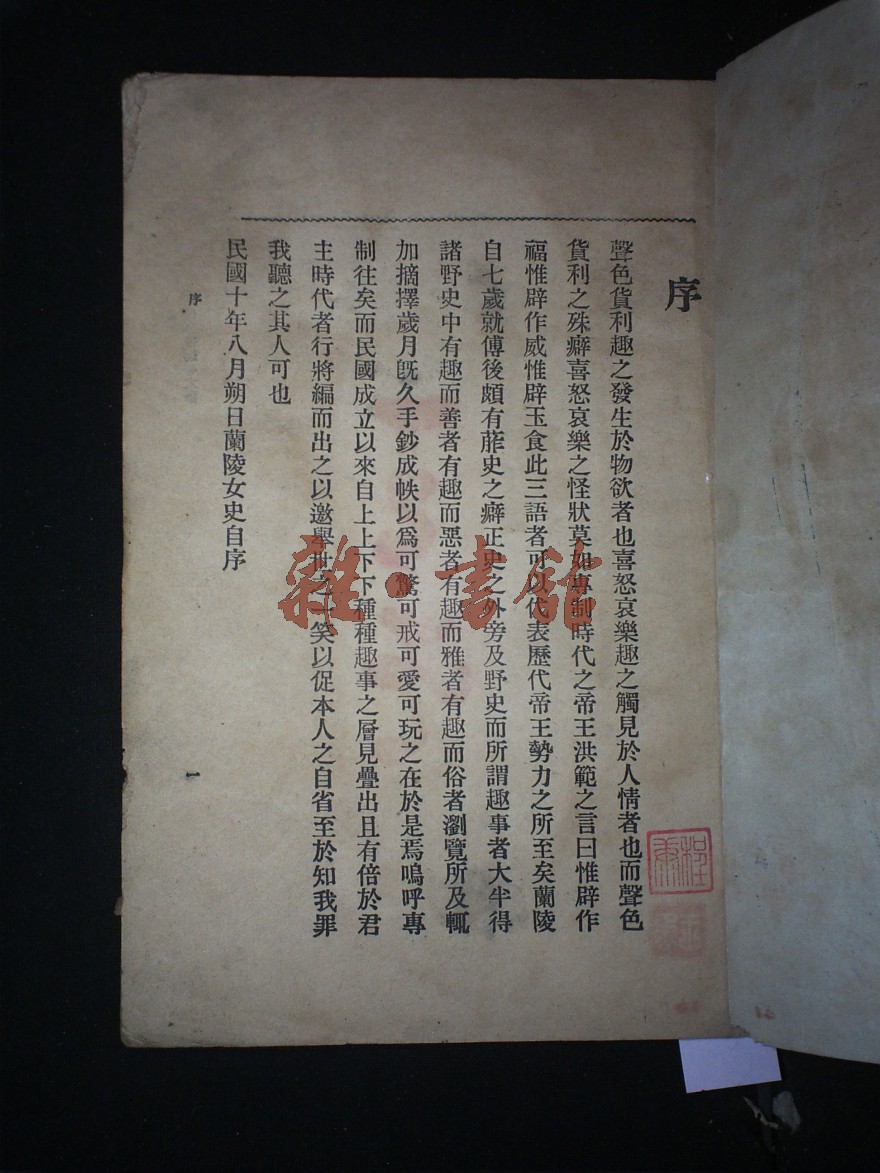 序
聲色貨利趣之發生於物欲者也喜怒哀樂趣之觸見於人情者也而聲色
貨利之殊癖喜怒哀樂之怪狀莫如專制時代之帝王洪範之言曰惟辟作
福惟辟作威惟辟玉食此三語者可以代表歷代帝王勢力之所至矣蘭陵
自七歲就傅後頗有葄史之癖正史之外旁及野史而所謂趣事者大半得
諸野史中有趣而善者有趣而惡者有趣而雅者有趣而俗者瀏覽所及輒
加摘擇歲月旣久手鈔成帙以爲可驚可戒可愛可玩之在於是焉嗚呼專
制往矣而民國成立以來自上上下下種種趣事之層見疊出且有倍於君
主時代者行將編而出之以邀舉世之一笑以促本人之自省至於知我罪
我聽之其人可也
民國十年八月朔日蘭陵女史自序
序
一
雜·書館